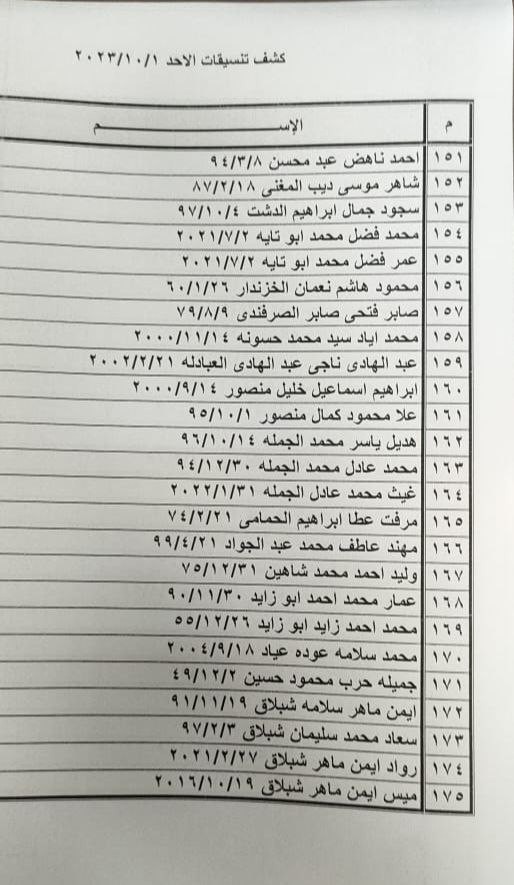 كشف تنسيقات الاحد ٢٠٢٣/١٠/١
م الإســـــــم
١٥١ احمد ناهض عبد محسن ٩٤/٣/٨
١٥٢ شاهر موسى ديب المغنى ٨٧/٢/١٨
١٥٣ سجود جمال ابراهيم الدشت ٩٧/١٠/٤
١٥٤ محمد فضل محمد ابو تايه ٢٠٢١/٧/٢
١٥٥ عمر فضل محمد ابو تايه ٢٠٢١/٧/٢
١٥٦ محمود هاشم نعمان الخزندار ٦٠/١/٢٦
١٥٧ صابر فتحى صابر الصرفندى ٧٩/٨/٩
١٥٨ محمد اياد سيد محمد حسونه ٢٠٠٠/١١/١٤
١٥٩ عبد الهادى ناجى عبد الهادى العبادله ٢٠٠٢/٢/٢١
١٦٠ ابراهيم اسماعيل خليل منصور ٢٠٠٠/٩/١٤
١٦١ علا محمود كمال منصور ٩٥/١٠/١
١٦٢ هديل ياسر محمد الجمله ٩٦/١٠/١٤
١٦٣ محمد عادل محمد الجمله ٩٤/١٢/٣٠
١٦٤ غيث محمد عادل الجمله ٢٠٢٢/١/٣١
١٦٥ مرفت عطا ابراهيم الحمامى ٧٤/٢/٢١
١٦٦ مهند عاطف محمد عبد الجواد ٩٩/٤/٢١
١٦٧ وليد احمد محمد شاهين ٧٥/١٢/٣١
١٦٨ عمار محمد احمد ابو زايد ٩٠/١١/٣٠
١٦٩ محمد احمد زايد ابو زايد ٥٥/١٢/٢٦
١٧٠ محمد سلامه عوده عياد ٢٠٠٤/٩/١٨
١٧١ جميله حرب محمود حسين ٤٩/١٢/٢
١٧٢ ايمن ماهر سلامه شبلاق ٩١/١١/١٩
١٧٣ سعاد محمد سليمان شبلاق ٩٧/٢/٣
١٧٤ رواد ايمن ماهر شبلاق ٢٠٢١/٢/٢٧
١٧٥ ميس ايمن ماهر شبلاق ٢٠١٦/١٠/١٩